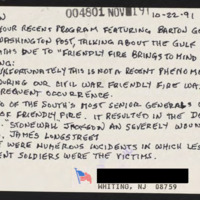 004801 NOV 191
10-22-91
OUR RECENT PROGRAM FEATURING BARTON GE
WASHINGTON POST, TALKING ABOUT THE GULF
ATHS DUE TO "FRIENDLY FIRE BRINGS TO MIND
NG:
NFORTUNATELY THIS IS NOT A RECENT PHENOME
URING OUR CIVIL WAR FRIENDLY FIRE WAS
REQUENT OCCURRENCE.
O OF THE SOUTH'S MOST SENIOR GENERALS
OF FRIENDLY FIRE. IT RESULTED IN THE DE
STONEWALL JACKSON AN SEVERELY WOUN
JAMES LONGSTREET
WERE NUMEROUS INCIDENTS IN WHICH LESS
ENT SOLDIERS WERE THE VICTIMS.
WHITING, NJ 08759